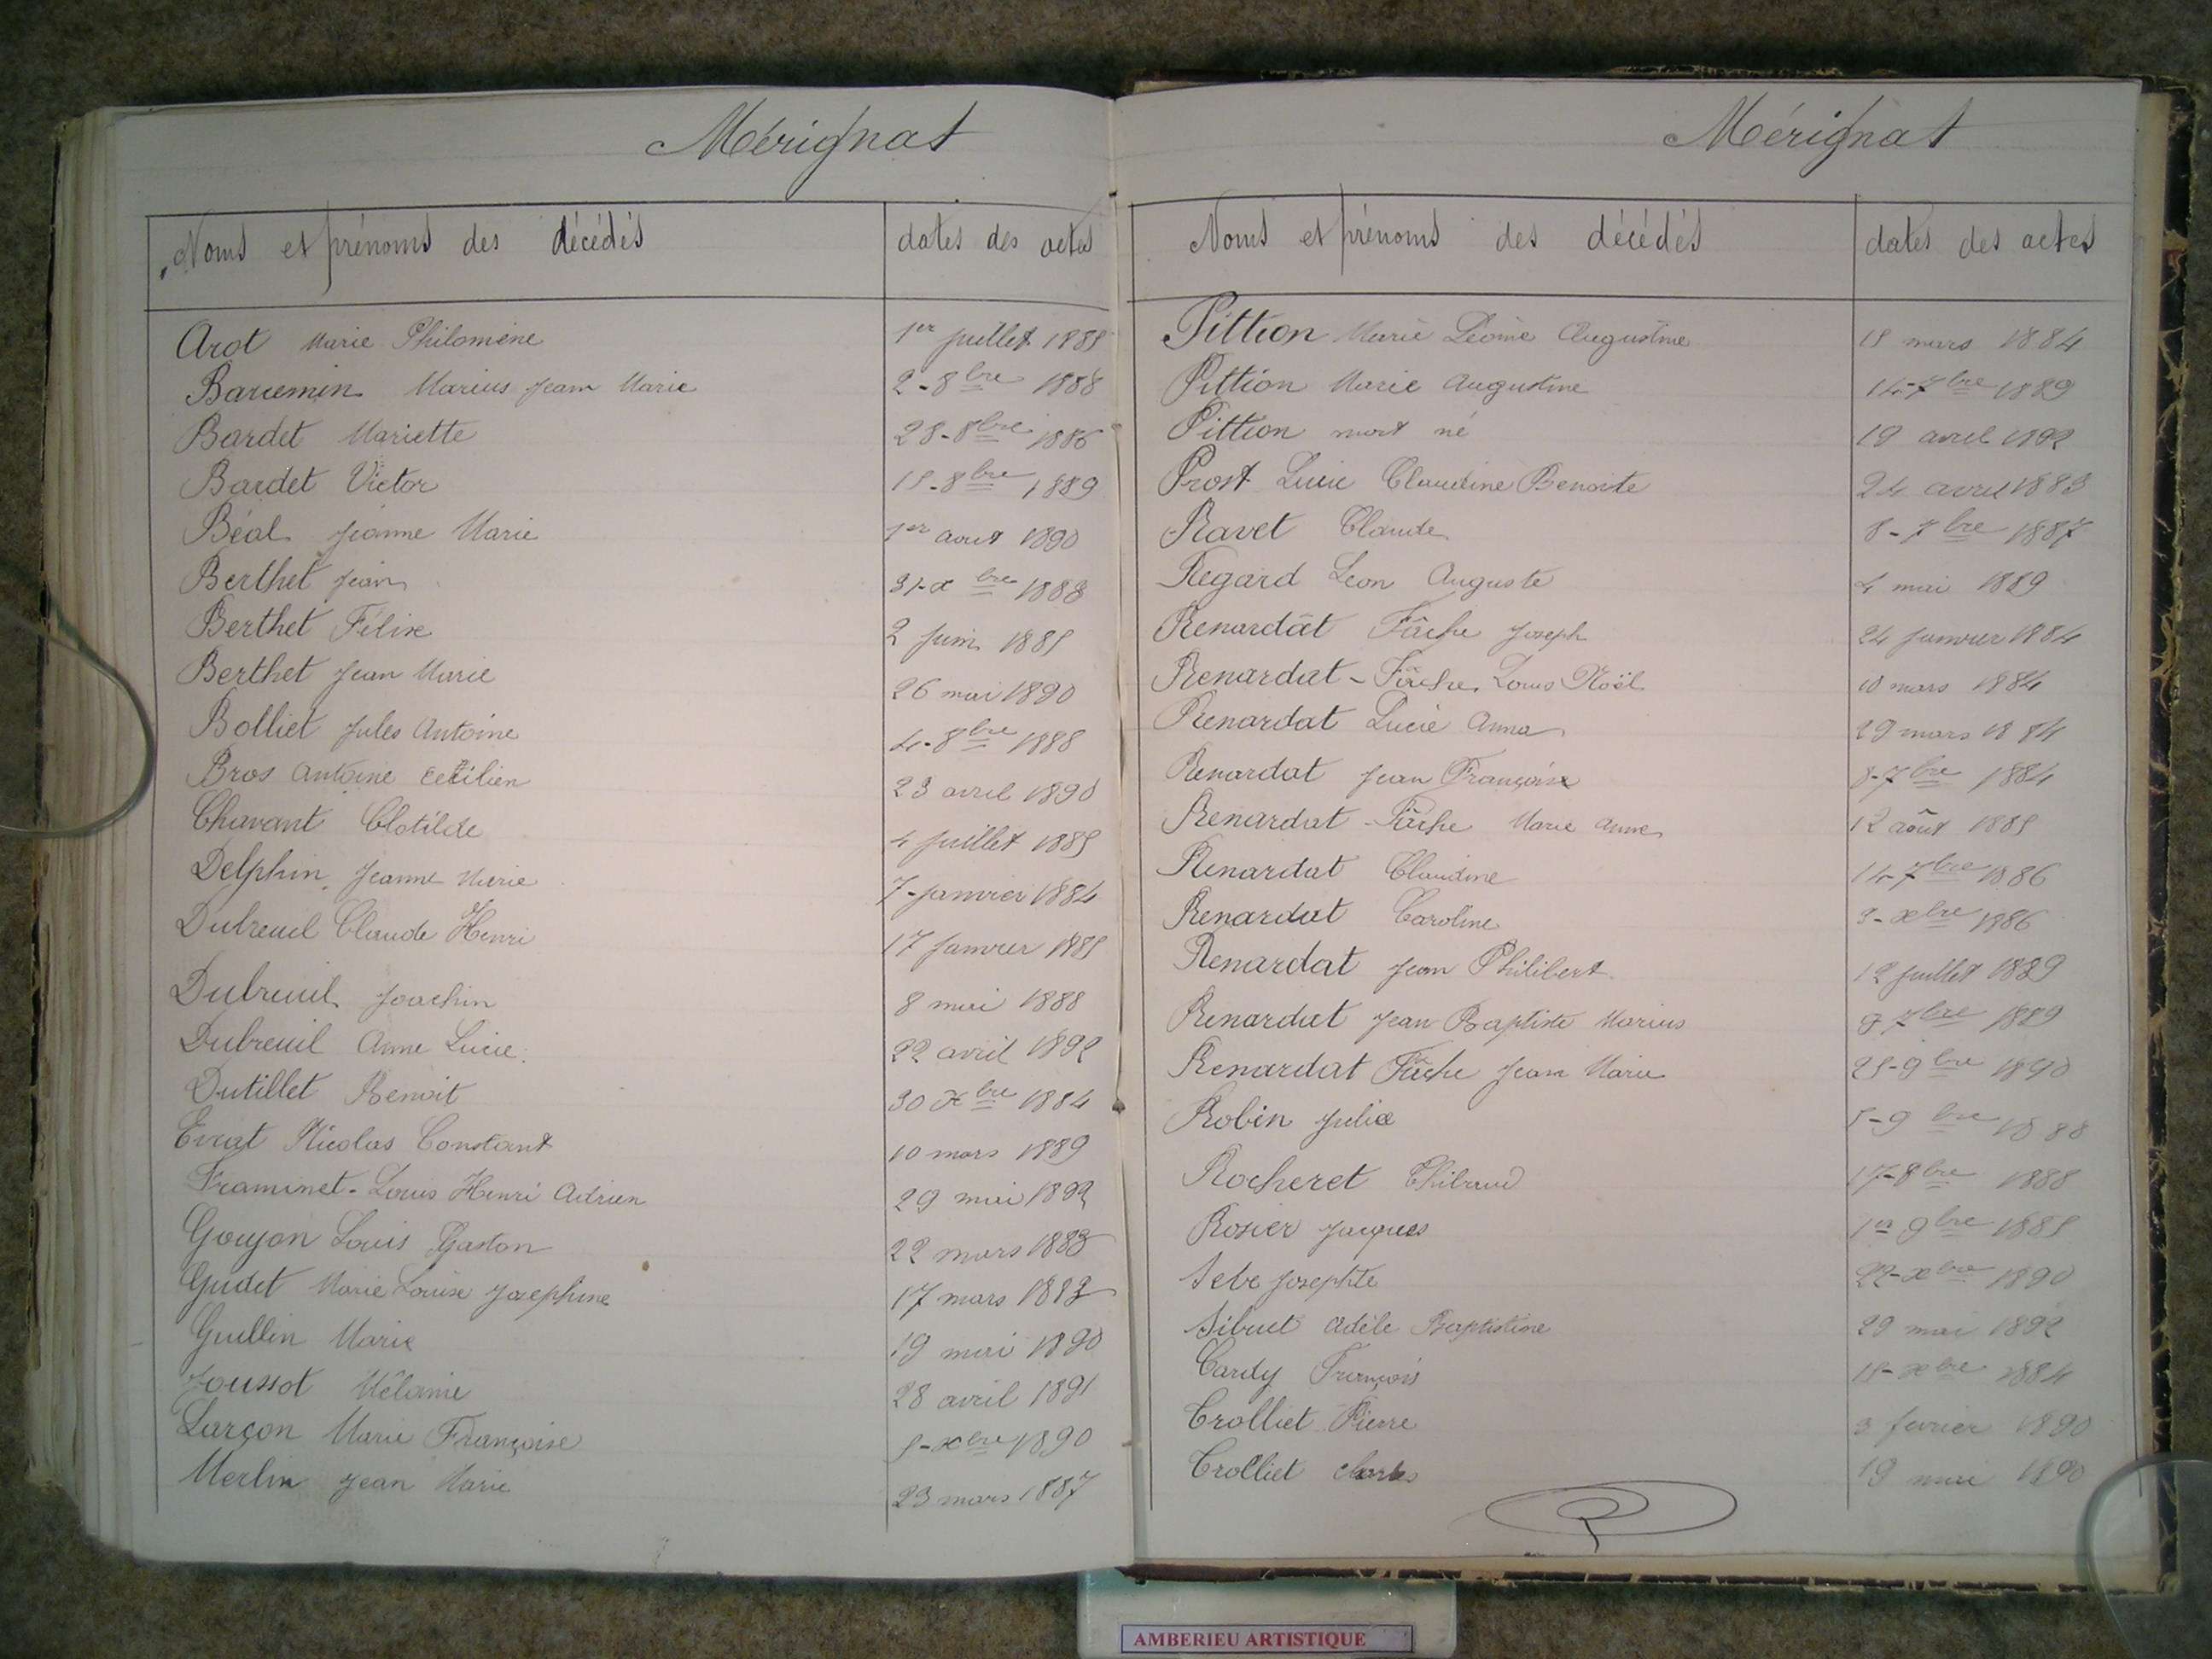 Mérignat
Noms et prénoms des décédés dates des actes
Arot Marie Philomène 1er juillet 1885
Barcemin Marius Jean Marie 2-8bre 1888
Bardet Mariette 28-8bre 1886
Bardet Victor 15-8bre 1889
Béal Jeanne Marie 1er aout 1890
Berthet Jean 31-xbre 1883
Berthet Félix 2 juin 1885
Berthet Jean Marie 26 mai 1890
Bolliet Jules Antoine 4-8bre 1888
Bros Antoine 23 avril 1890
Chavant Clotilde 4 juillet 1885
Delphin Jeanne Marie 7-janvier 1884
Dubreuil Claude Henri 17 janvier 1885
Dubreuil Joachin 8 mai 1888
Dubreuil Anne Lucie 22 avril 1892
Dutillet Benoit 30 xbre 1884
Evrat Nicolas Constant 10 mars 1889
Framinet-Louis Henri Adrien 29 mai 1892
Goujon Louis Gaston 22 mars 1883
Gudet Marie Louise Josephine 17 mars 1883
Guillin Marie 19 mai 1890
Joussot Mélanie 28 avril 1891
Larçon Marie Françoise 5-xbre 1890
Merlin Jean Marie 23 mars 1887
Mérignat
Noms et prénoms des décédés dates des actes
Pittion Marie Léonie Augustine 15 mars 1884
Pittion Marie Augustine 14-7bre 1889
Pittion mort né 19 avril 1892
Prost Lucie Claudine Benoite 24 avril 1883
Ravet Claude 8-7bre 1887
Regard Leon Auguste 4 mai 1889
Renardat Fâche Joseph 24 janvier 1884
Renardat-Fâche Louis Noël 10 mars 1884
Renardat Lucie Anna 29 mars 1884
Renardat Jean François 8-7bre 1884
Renardat-Fâche Marie Anne 12 août 1885
Renardat Claudine 14-7bre 1886
Renardat Caroline 3-xbre 1886
Renardat Jean Philibert 12 juillet 1889
Renardat Jean Baptiste Marius 7bre 1889
Renardat Fâche Jean Marie 25-9bre 1890
Robin Julie 5-9bre 1888
Rocheret Thibaud 17-8bre 1888
Rosier Jacques 1er 9bre 1885
Sebe Josephte 22-xbre 1890
Sibuet Adèle Baptistine 29 mai 1892
Tardy François 15-xbre 1884
Trolliet Pierre 3 février 1890
Trolliet Charles 19 mai 1890
AMBERIEU ARTISTIQUE